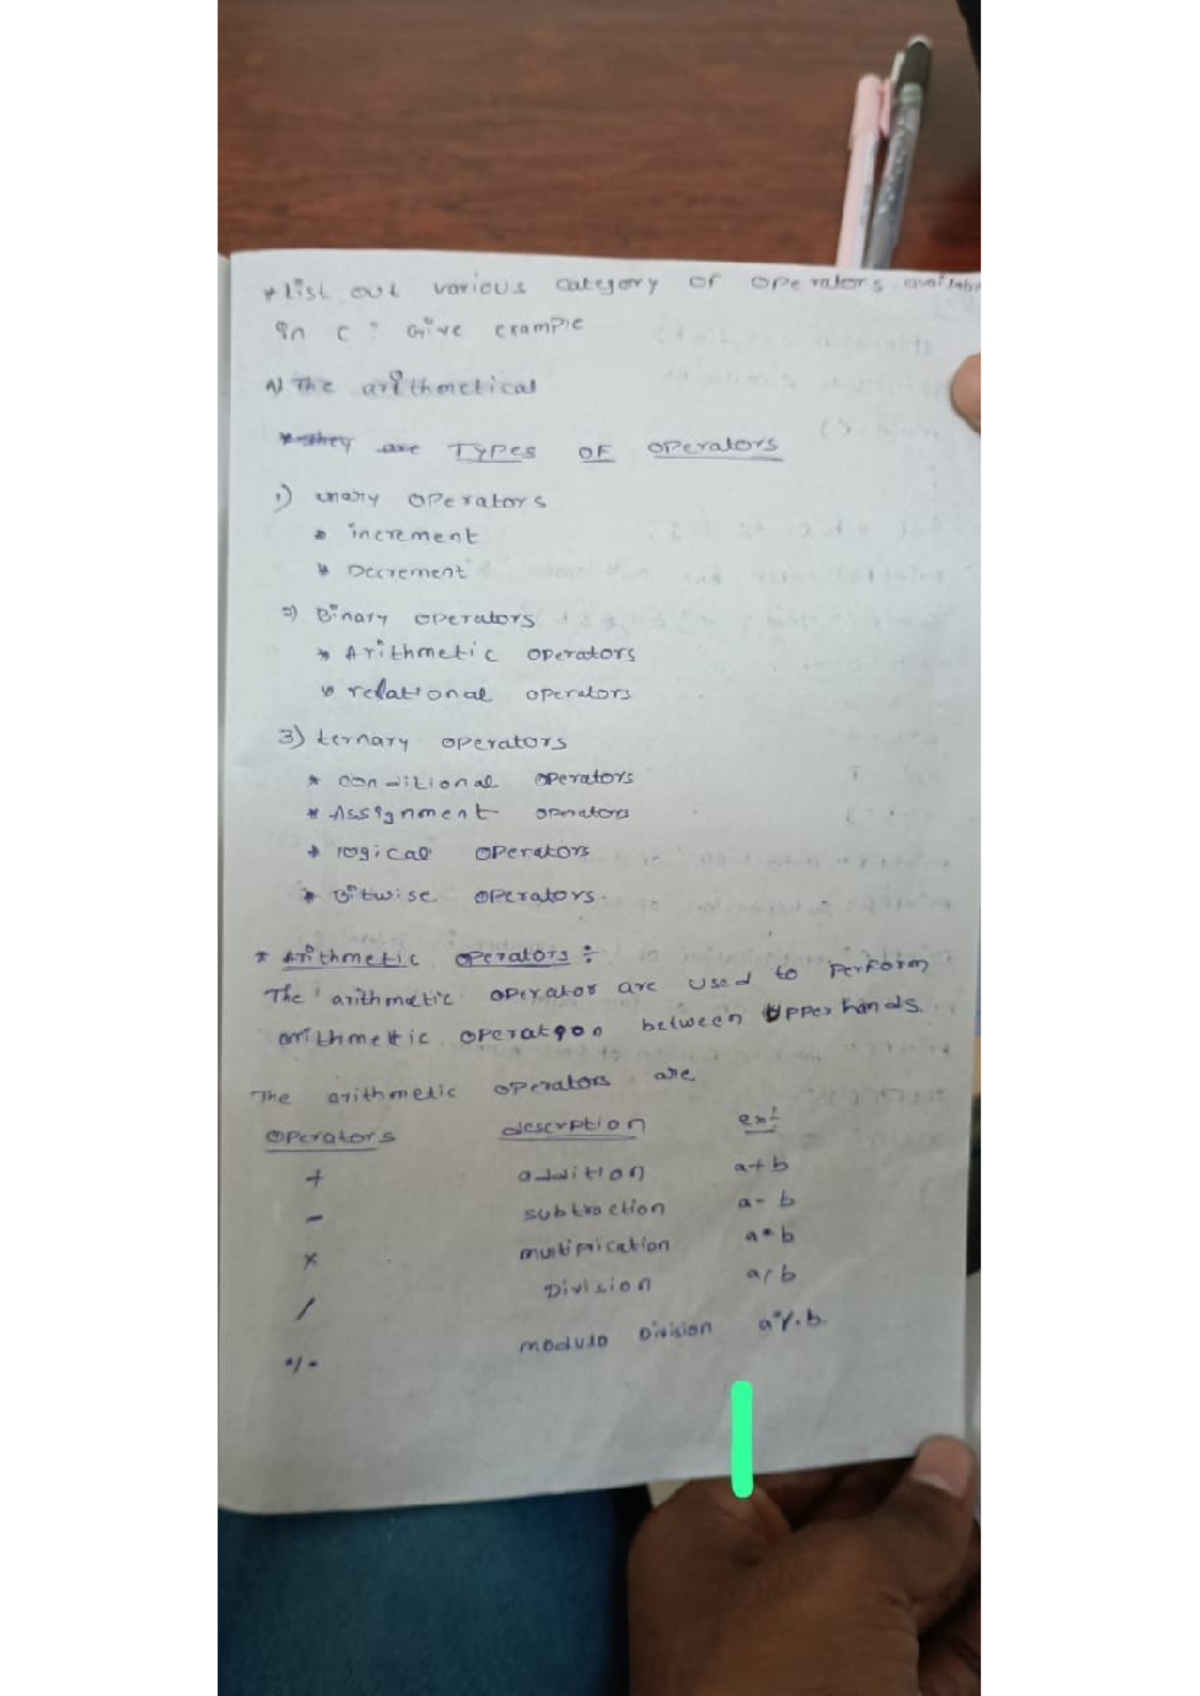 * List out various category of operators availab
in C? Give example
A) The arithmetical
* they are TYPES OF operators
1) unary operators
* increment
* Decrement
2) Binary operators
* Arithmetic operators
* relational operators
3) ternary operators
* conditional operators
* Assignment operators
* logical operators
* Bitwise operators.
* Arithmetic operators :-
The arithmetic operator are used to perform
arithmettic operation between Upperhands.
The arithmetic operators are
operators descrption ex:
+ addition a+b
- subtraction a-b
* multiplication a*b
/ Division a/b
% modulo Division a%b